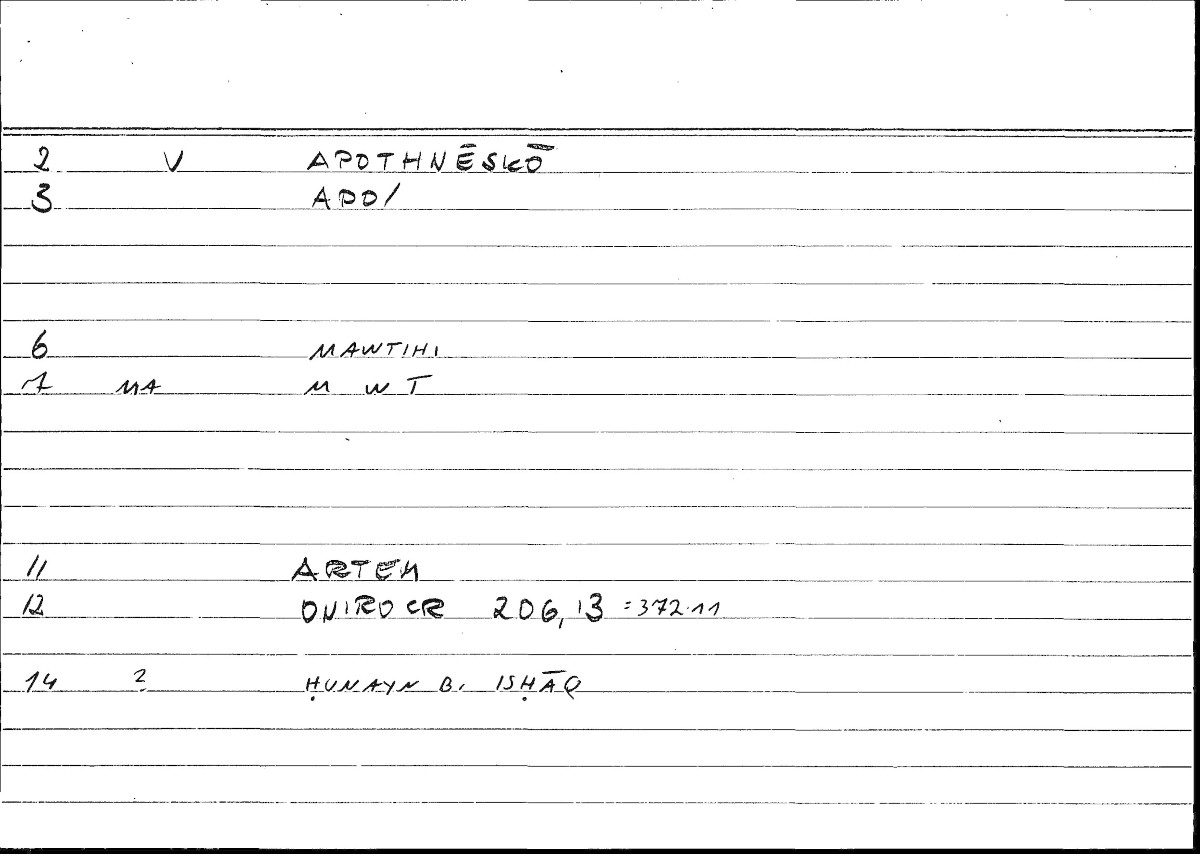 2 V APOTHNĒSKŌ
3 APO/
6 MAWTIHI
7 MA M W T
11 ARTEM
12 ONIROCR 206,13 =372.11
14 2 ḤUNAYN B. ISḤĀQ